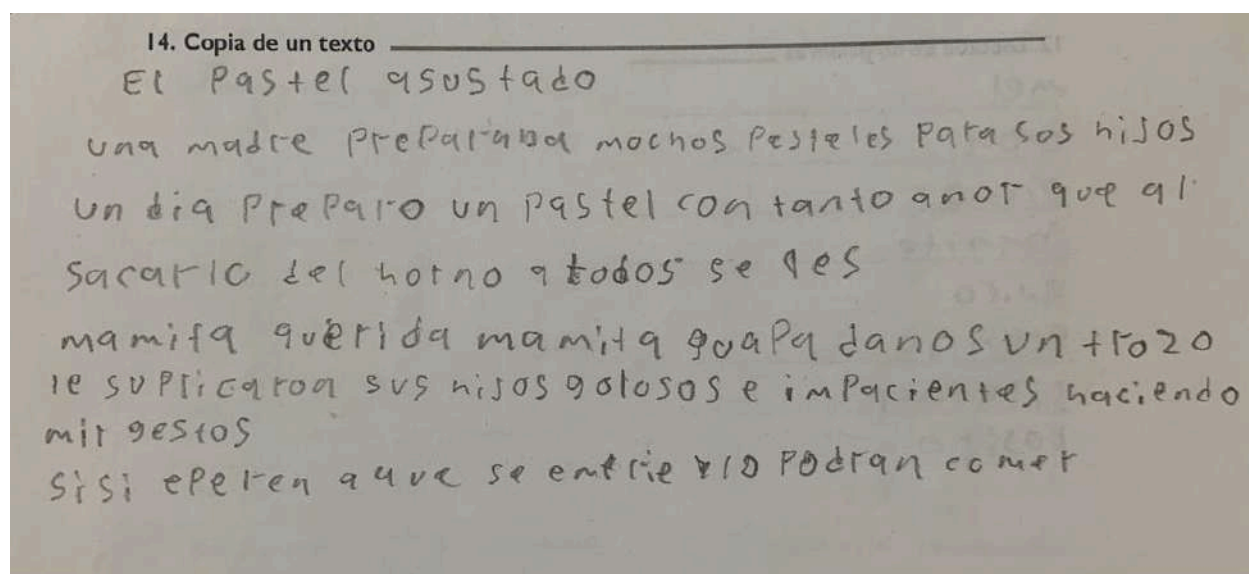 14. Copia de un texto
El Pastel asustado
una madre Preparaba mochos Pesteles Para sos hijos
un dia PreParo un pastel con tanto anor que al
sacarlo del horno a todos se les
mamita querida mamita guaPa danos un trozo
le suplicaron sus hijos golosos e imPacientes haciendo
mil gestos
sisi eperen a que se emfrie y lo Podran comer